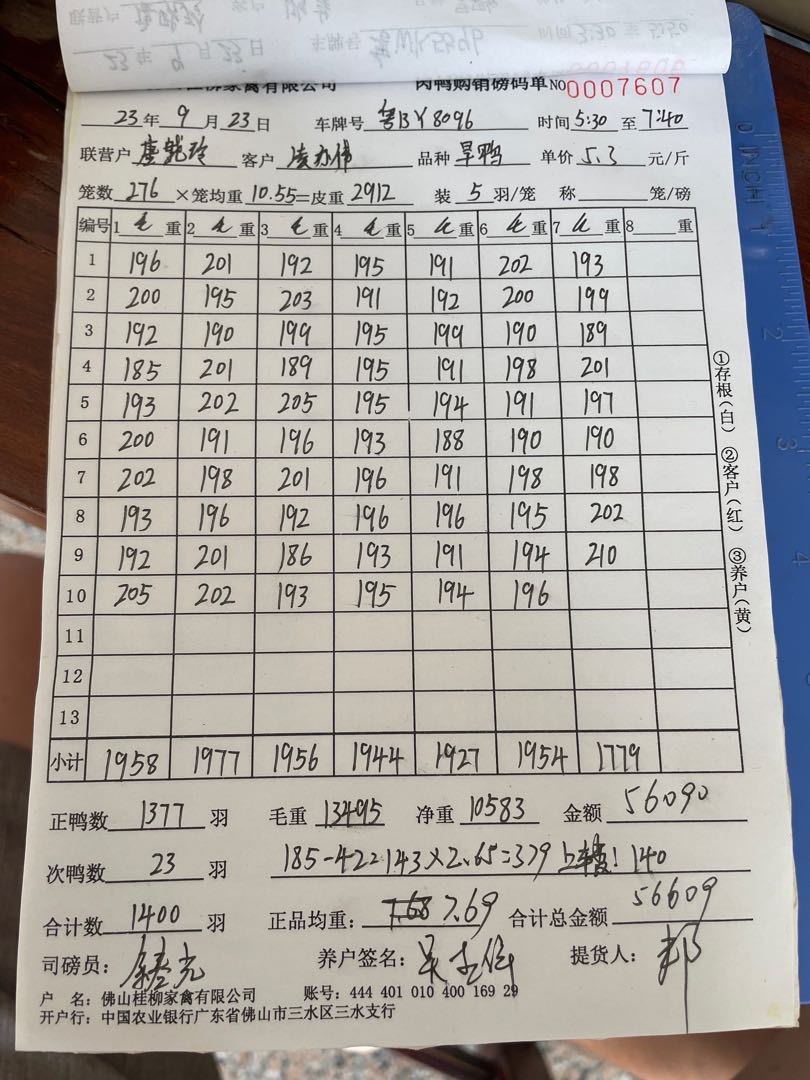 桂柳家禽有限公司 肉鸭购销磅码单 No 0007607
23年9月23日 车牌号 粤BY8096 时间 5:30 至 7:40
联营户 客户 品种 旱鸭 单价 5.3 元/斤
笼数 276 ×笼均重 10.55=皮重 2912 装 5 羽/笼 称 笼/磅
编号 1 毛 重 2 毛 重 3 毛 重 4 毛 重 5 毛 重 6 毛 重 7 毛 重 8 重
1 196 201 192 195 191 202 193
2 200 195 203 191 192 200 199
3 192 190 199 195 199 190 189
4 185 201 189 195 191 198 201
5 193 202 205 195 194 191 197
6 200 191 196 193 188 190 190
7 202 198 201 196 191 198 198
8 193 196 192 196 196 195 202
9 192 201 186 193 191 194 210
10 205 202 193 195 194 196
11
12
13
小计 1958 1977 1956 1944 1927 1954 1779
①存根(白) ②客户(红) ③养户(黄)
正鸭数 1377 羽 毛重 13495 净重 10583 金额 56090
次鸭数 23 羽 185-42=143×2.65=379 上车费! 140
合计数 1400 羽 正品均重: 7.68 7.69 合计总金额 56609
司磅员: 养户签名: 提货人:
户 名:佛山桂柳家禽有限公司 账号:444 401 010 400 169 29
开户行:中国农业银行广东省佛山市三水区三水支行